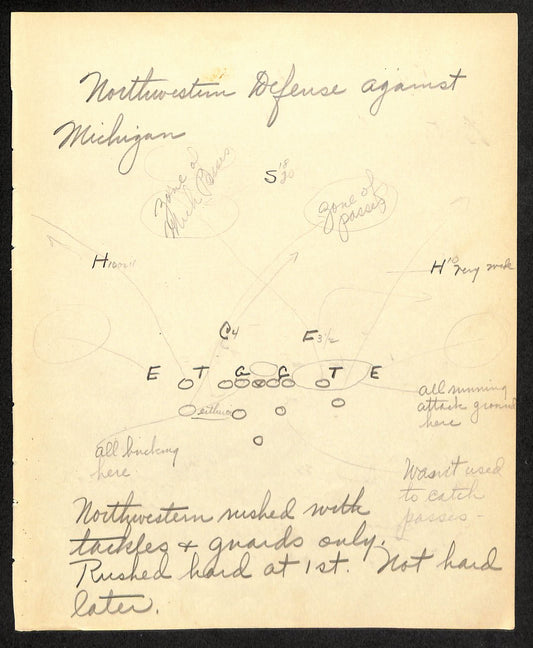 Northwestern Defense against
Michigan
Zone of
Much Passes
S 18
20
Zone of
passes
H 10 or 11
H 10 very weak
C 4
F 3 1/2
E T G G T E
either
all running
attack ground
here
all bucking
here
Wasn't used
to catch
passes -
Northwestern rushed with
tackles & guards only.
Rushed hard at 1st. Not hard
later.